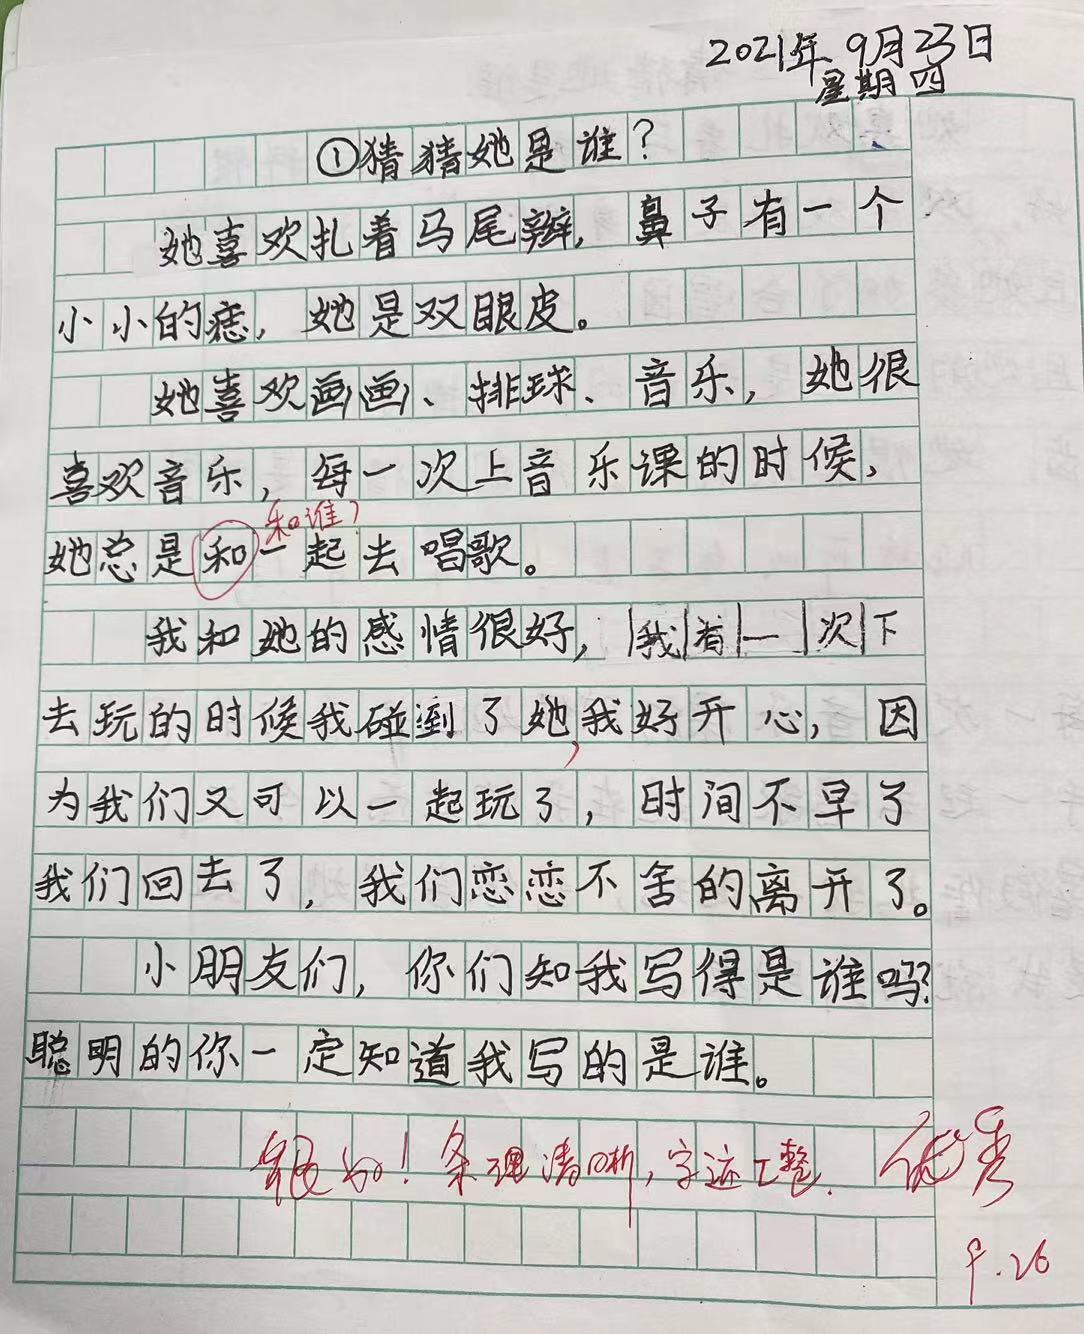 2021年9月23日
星期四
①猜猜她是谁？
她喜欢扎着马尾辫，鼻子有一个
小小的痣，她是双眼皮。
她喜欢画画、排球、音乐，她很
喜欢音乐，每一次上音乐课的时候，
和谁？
她总是和一起去唱歌。
我和她的感情很好，我有一次下
去玩的时候我碰到了她，我好开心，因
为我们又可以一起玩了，时间不早了
我们回去了，我们恋恋不舍的离开了。
小朋友们，你们知我写得是谁吗？
聪明的你一定知道我写的是谁。
很好！条理清晰，字迹工整.
优秀
9.26